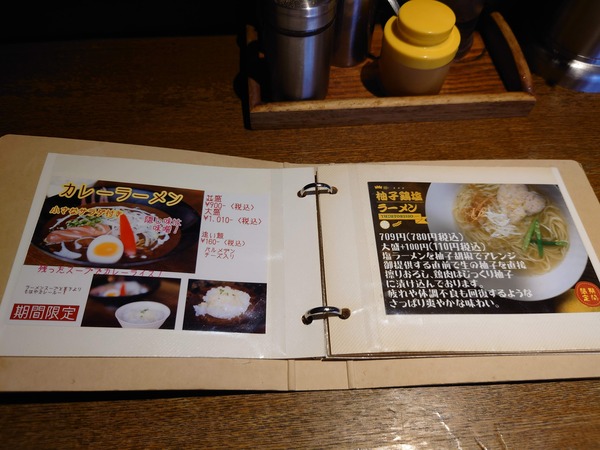 カレーラーメン
小さなサラダ付き
隠し味は
味噌！
並盛
¥900-(税込)
大盛
¥1,010-(税込)
追い飯
¥160-(税込)
パルメザン
チーズ入り
残ったスープへカレーライス！
期間限定
柚子鶏塩
ラーメン
709円(780円税込)
大盛+100円(110円税込)
塩ラーメンを柚子胡椒でアレンジ
御提供する直前で生の柚子を直接
擦りおろし、鶏肉はじっくり柚子
に漬け込んでおります。
疲れや体調不良も回復するような
さっぱり爽やかな味わい。
期間
限定